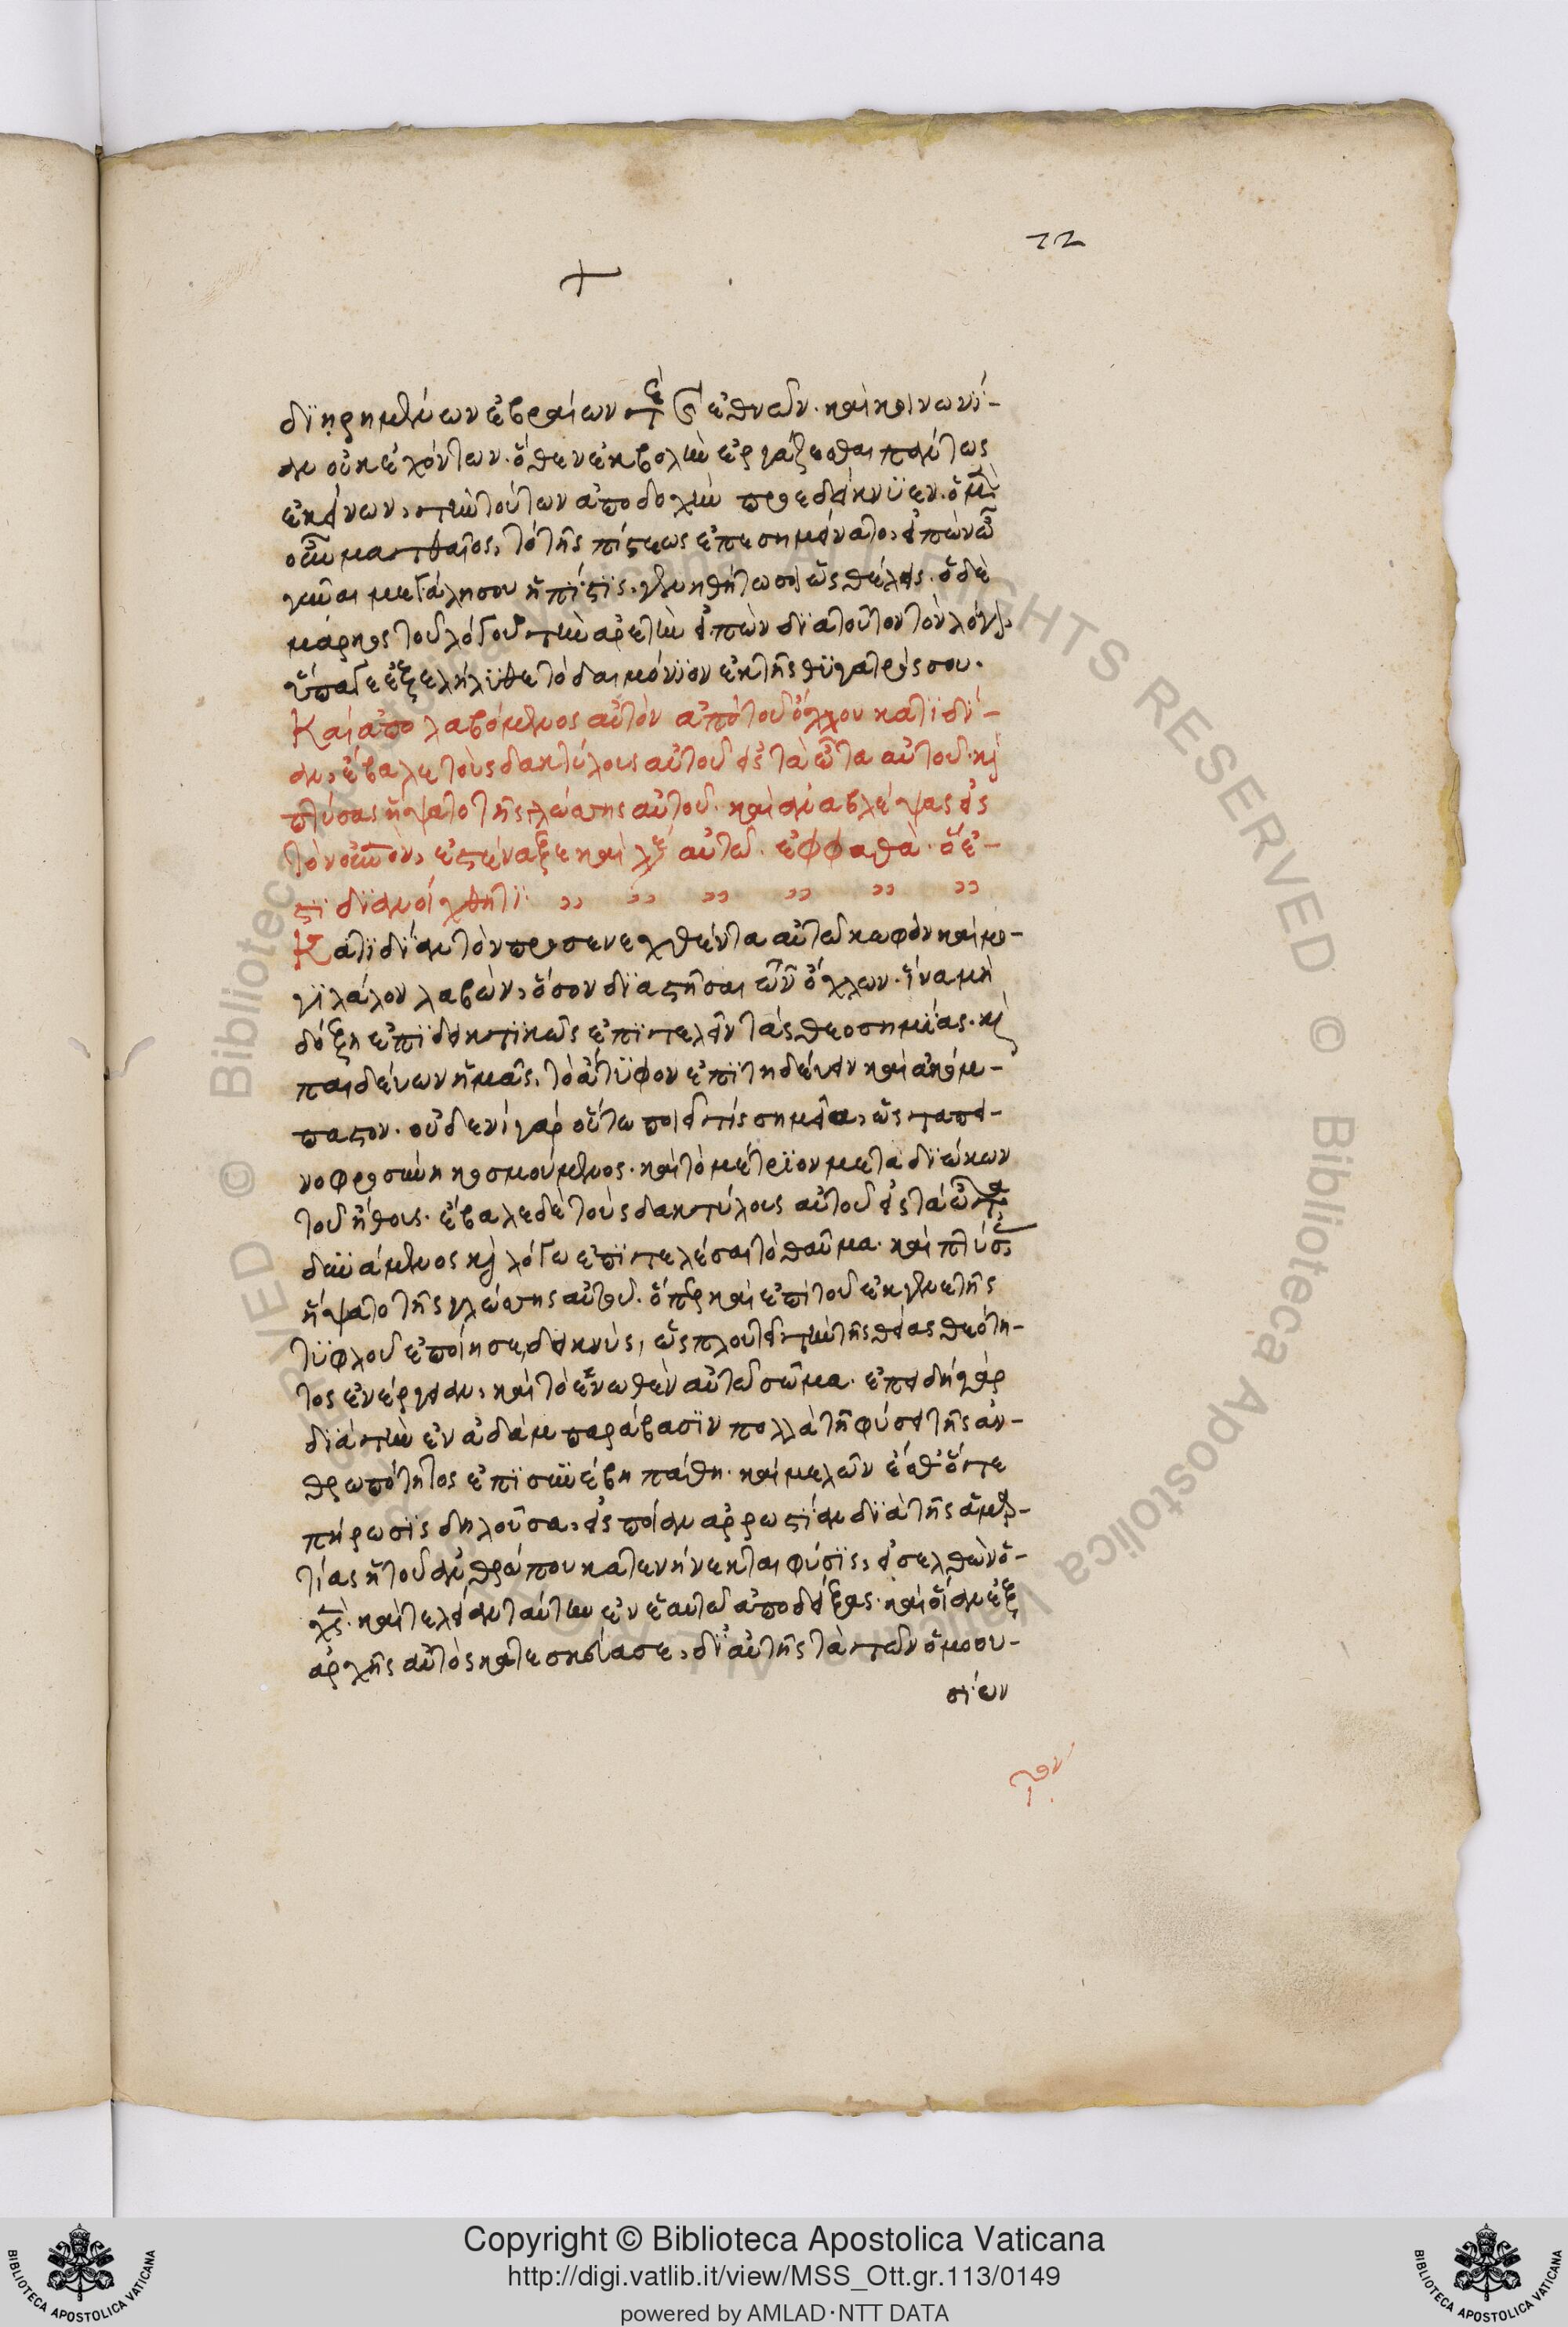 72
+
διῃρημένων ἑβραίων τὲ ἐθνῶν. καὶ κοινωνί-
αν οὐκ ἐχόντων. ὅθεν ἐκβολὴν ἐργάζεσθαι πάντως
ἐκείνων, τὴν τούτων ἀποδοχὴν προεδείκνϋεν.
οὖν ματθαῖος, τὸ τῆς πίστεως ἐπεσημείνατο, εἰπὼν ὦ
γύναι μεγάλη σου ἡ πίστϊς. γενηθήτω σοι ὡς θέλεις. ὁ δὲ
μάρκος τοῦ λόγου τὴν ἀρετὴν εἰπὼν διὰ τοῦτον τὸν λόγον
ὕπαγε ἐξελήλϋθε τὸ δαιμόνϊον ἐκ τῆς θϋγατρός σου.
Καὶ ἀπολαβόμενος αὐτὸν ἀπὸ τοῦ ὄχλου κατϊδί-
αν, ἔβαλε τοὺς δακτύλους αὐτοῦ εἰς τὰ ὦτα αὐτοῦ. κ
πτύσας ἥψατο τῆς γλώσσης αὐτοῦ. καὶ ἀναβλέψας εἰς
τὸν οὐνον, ἐστέναξε καὶ λέγ αὐτῶ. ἐφφαθὰ. ὅ ἐ-
στϊ διανοίχθητϊ ,, ,, ,, ,, ,, ,,
Κατϊδίαν τὸν προσενεχθέντα αὐτῶ κωφὸν καὶ μο-
γϊλάλον λαβὼν, ὅσον διαστῆσαι τῶν ὄχλων. ἵνα μὴ
δόξη ἐπϊδεικτϊκῶς ἐπϊτελεῖν τὰς θεοσημίας. κ
παιδεύων ἡμᾶς, τὸ ἄτϋφον ἐπϊτηδεύειν καὶ ἀκόμ-
παστον. οὐδενὶ γὰρ οὕτω ποιεῖ τίς σημεῖα, ὡς ταπει-
νοφροσύνη κοσμούμενος. καὶ τὸ μέτρϊον μεταδιώκων
τοῦ ἤθους. ἔβαλε δὲ τοὺς δακτύλους αὐτοῦ εἰς τὰ ὦτα
δϋνάμενος κ λόγω ἐπϊτελέσαι τὸ θαῦμα. καὶ πτύσας
ἥψατο τῆς γλώσσης αὐτοῦ. ὅπερ καὶ ἐπὶ τοῦ ἐκ γενετῆς
τϋφλοῦ ἐποίησε, δεικνὺς, ὡς πλουτεῖ τὴν τῆς θείας θεότη-
τος ἐνέργειαν, καὶ τὸ ἑνωθὲν αὐτῶ σῶμα. ἐπειδὴ γὰρ
διὰ τὴν ἐν ἀδὰμ παράβασϊν πολλὰ τῆ φύσει τῆς ἀν-
θρωπότητος ἐπϊσϋνέβη πάθη. καὶ μελῶν ἔσθ' ὅτε
πήρωσϊς δηλοῦσα, εἰς ποίαν ἀρρωστίαν διὰ τῆς ἁμαρ-
τίας ἡ τοῦ ἀνθρώπου κατενήνεκται φύσϊς, εἰσελθὼν ὁ
χς. καὶ τελείαν ταύτην ἐν ἑαυτῶ ἀποδείξας. καὶ οἵαν ἐξ
ἀρχῆς αὐτὸς κατεσκεύασε, δι' αὐτῆς τὰ τῶν ὁμοου-
σίων